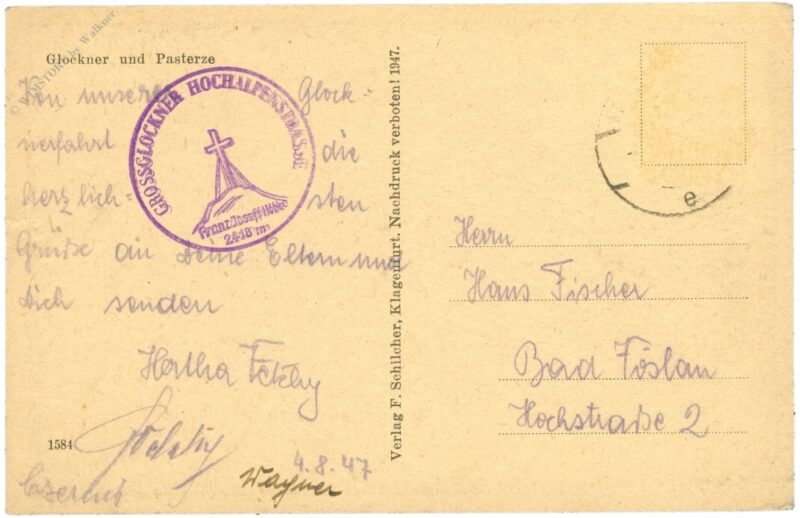 Glockner und Pasterze
Von unserer Glock-
nerfahrt die
herzlich- sten
Grüße an Deine Eltern und
Dich senden
Hertha
1584
4.8.47
Wagner
GROSSGLOCKNER HOCHALPENSTRASSE
Franz Josefs Höhe
2418 m
Verlag F. Schilcher, Klagenfurt. Nachdruck verboten! 1947.
Herrn
Hans Fischer
Bad Föslau
Hochstraße 2